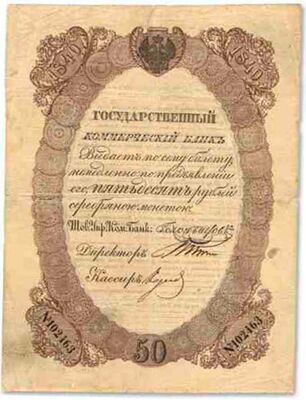 1840 1840
ГОСУДАРСТВЕННЫЙ
КОММЕРЧЕСКІЙ БАНКЪ
Выдаетъ по сему билету
немедленно по предъявленіи
его пятьдесятъ рублей
серебряною монетою.
Тов. Упр. Ком. Банк:
Директоръ
Кассиръ
N102463 50 N102463